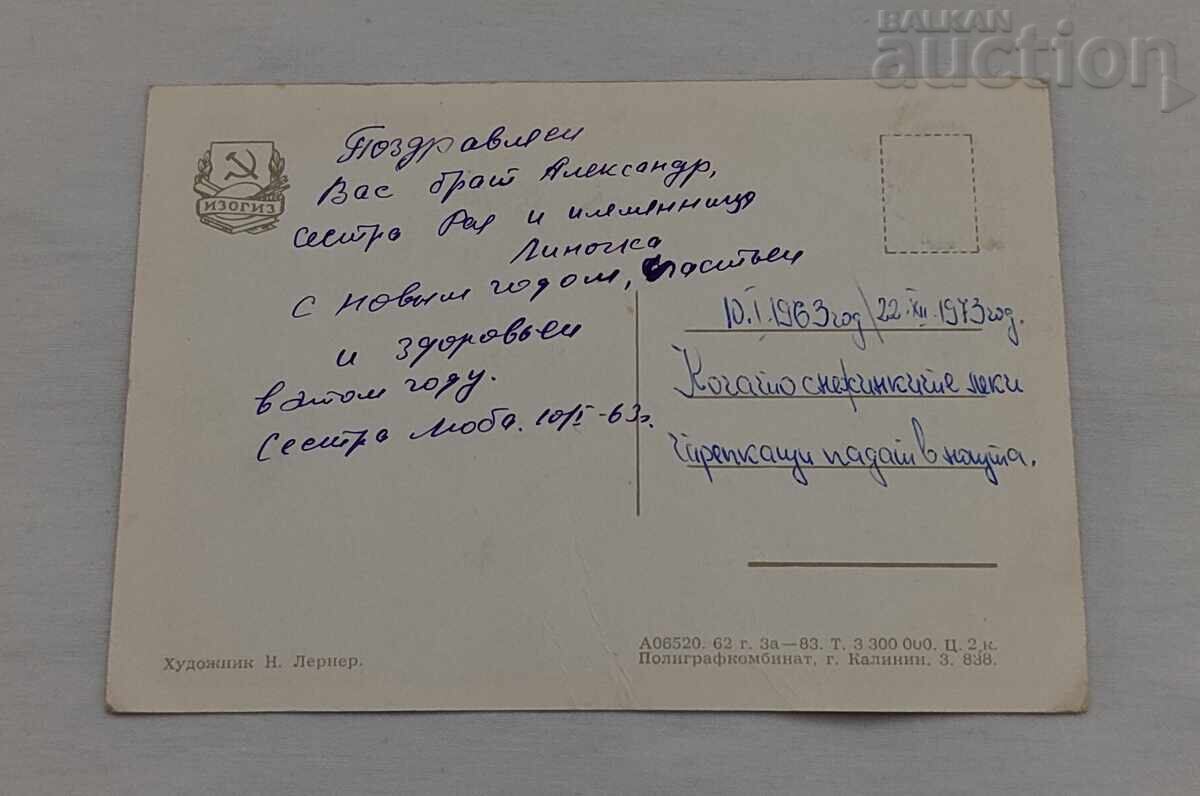 BALKAN
auction
ИЗОГИЗ
Поздравляем
Вас брат Александр,
сестра Рая и племянница
Линочка
с новым годом, счастьем
и здоровьем
в этом году.
Сестра Люба. 10/I-63г.
10.I.1963год/22.XII.1973год.
Когато снежинките леки
Трепкащи падат в нощта.
Художник Н. Лернер.
А06520. 62 г. За—83. Т. 3 300 000. Ц. 2 к.
Полиграфкомбинат, г. Калинин. З. 838.